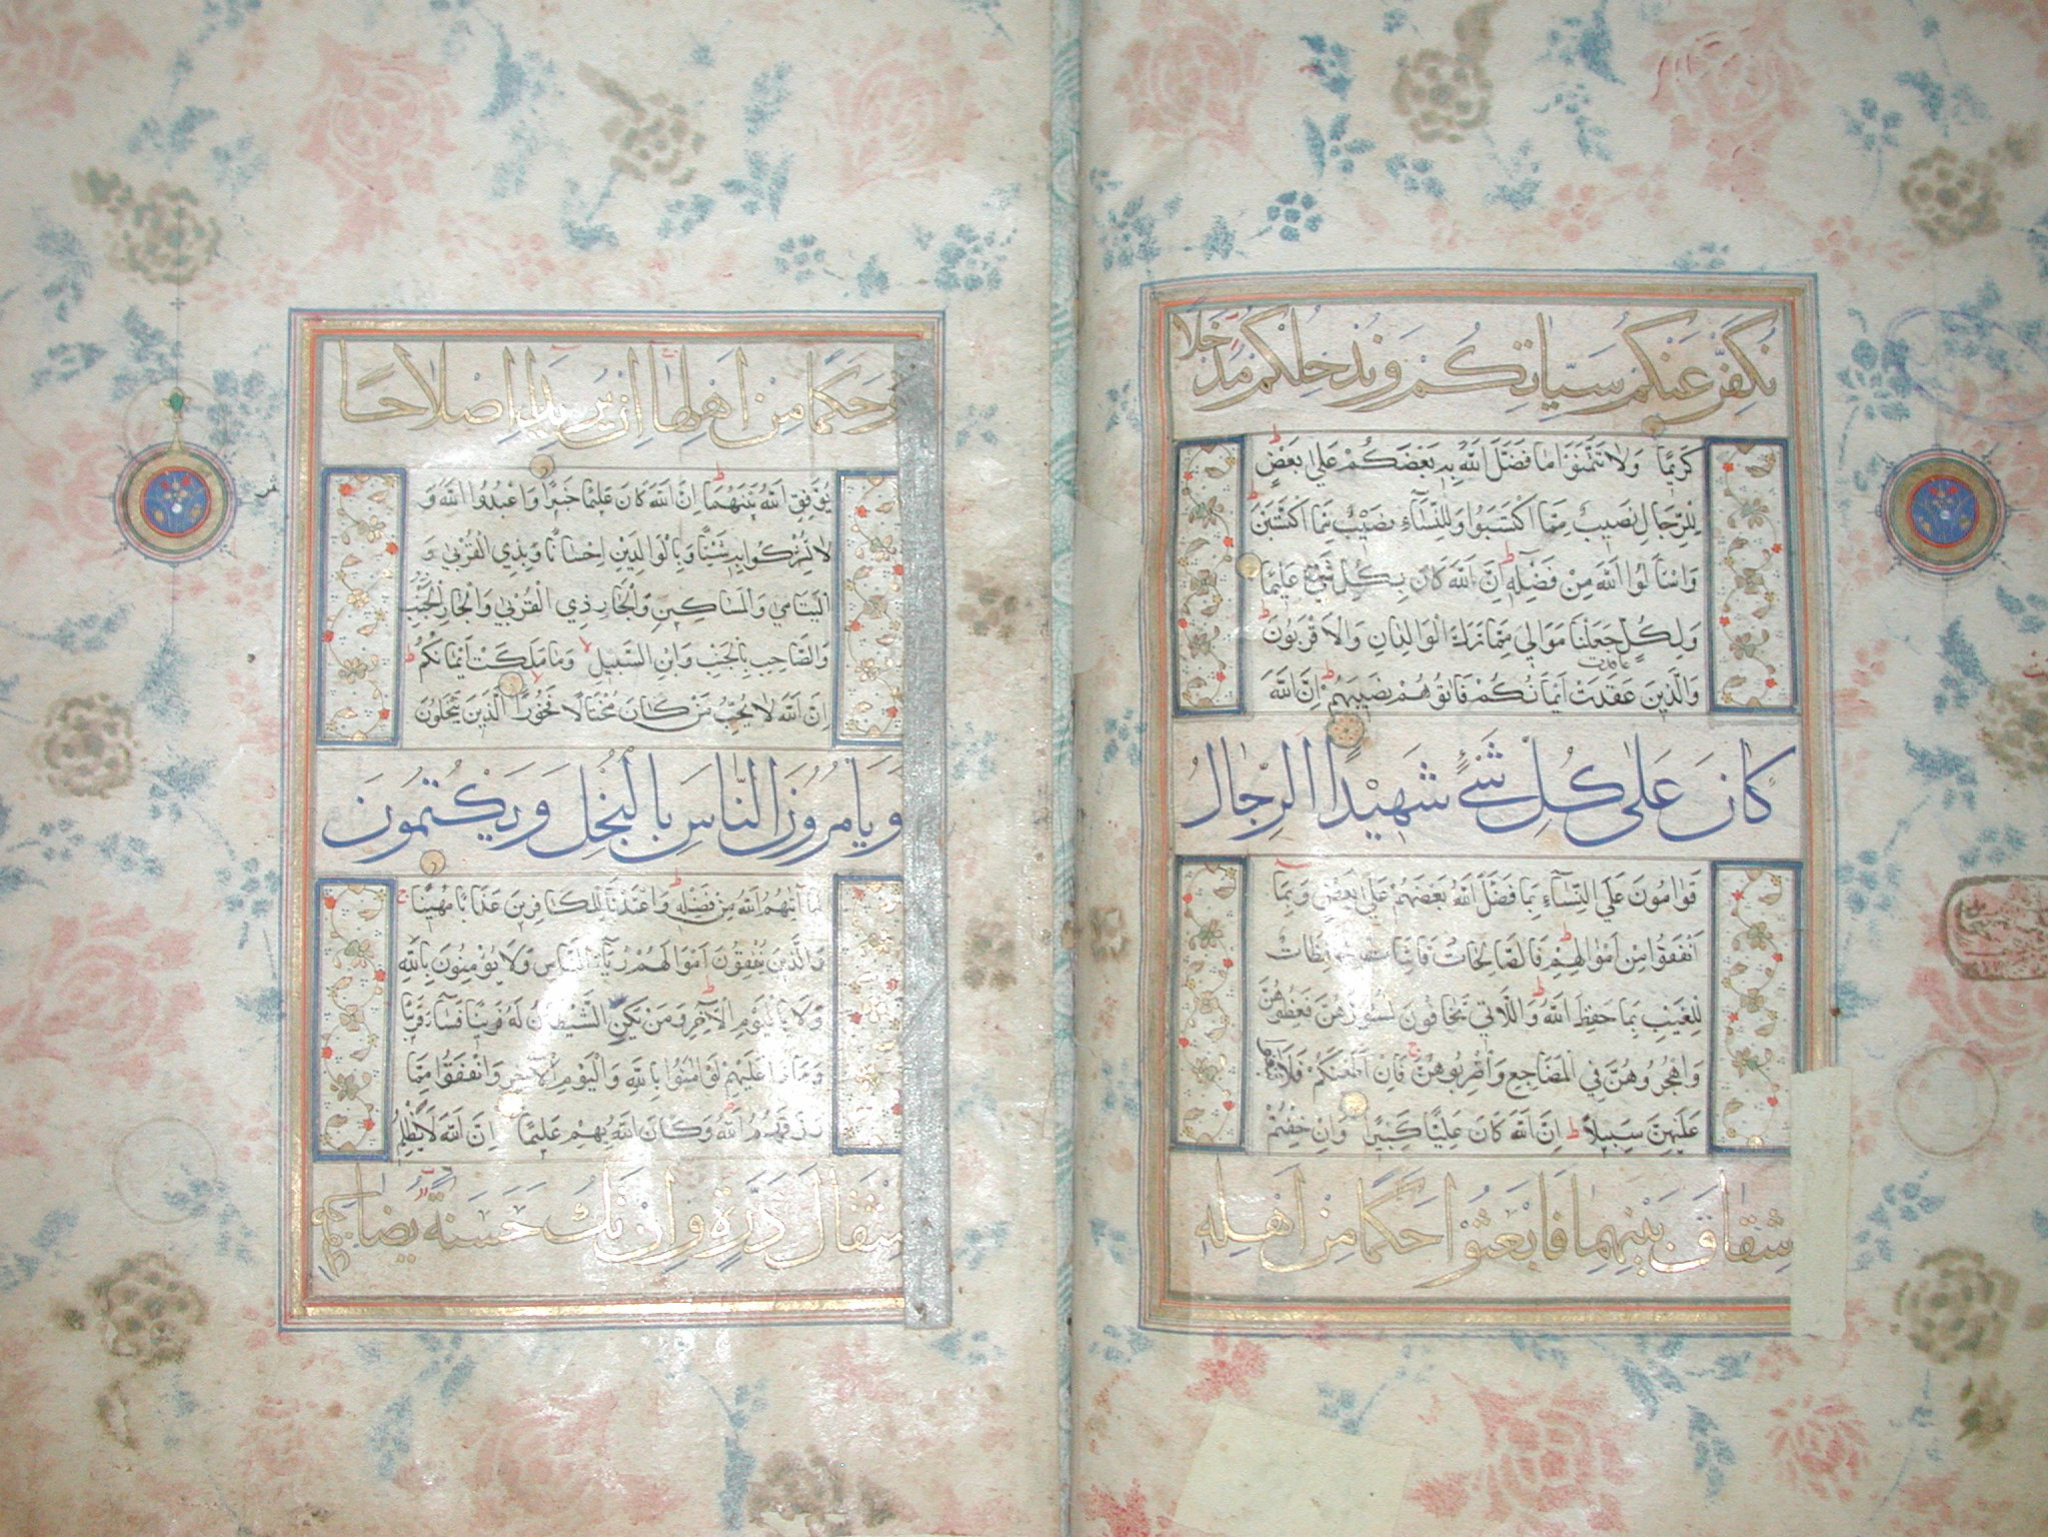 نُكَفِّرْ عَنْكُمْ سَيِّاٰتِكُمْ وَنُدْخِلْكُمْ مُدْخَلاً
كَرِيمًا وَلَا تَتَمَنَّوْا مَا فَضَّلَ اللّٰهُ بِهِ بَعْضَكُمْ عَلَى بَعْضٍ
لِلرِّجَالِ نَصِيبٌ مِمَّا اكْتَسَبُوا وَلِلنِّسَآءِ نَصِيبٌ مِمَّا اكْتَسَبْنَ
وَاسْأَلُوا اللّٰهَ مِنْ فَضْلِهِ اِنَّ اللّٰهَ كَانَ بِكُلِّ شَيْءٍ عَلِيمًا
وَلِكُلٍّ جَعَلْنَا مَوَالِيَ مِمَّا تَرَكَ الْوَالِدَانِ وَالْاَقْرَبُونَ
وَالَّذِينَ عَقَدَتْ اَيْمَانُكُمْ فَآتُوهُمْ نَصِيبَهُمْ اِنَّ اللّٰهَ
كَانَ عَلٰى كُلِّ شَيْءٍ شَهِيْدًا الرِّجَالُ
قَوَّامُونَ عَلَى النِّسَآءِ بِمَا فَضَّلَ اللّٰهُ بَعْضَهُمْ عَلَى بَعْضٍ وَبِمَا
اَنْفَقُوا مِنْ اَمْوَالِهِمْ فَالصَّالِحَاتُ قَانِتَاتٌ حَافِظَاتٌ
لِلْغَيْبِ بِمَا حَفِظَ اللّٰهُ وَاللَّاتِي تَخَافُونَ نُشُوزَهُنَّ فَعِظُوهُنَّ
وَاهْجُرُوهُنَّ فِي الْمَضَاجِعِ وَاضْرِبُوهُنَّ فَاِنْ اَطَعْنَكُمْ فَلَا تَبْغُوا
عَلَيْهِنَّ سَبِيلاً اِنَّ اللّٰهَ كَانَ عَلِيًّا كَبِيرًا وَاِنْ خِفْتُمْ
شِقَاقَ بَيْنِهِمَا فَابْعَثُوْا حَكَمًا مِنْ اَهْلِهِ
وَحَكَمًا مِنْ اَهْلِهَا اِنْ يُرِيدَا اِصْلَاحًا
يُوَفِّقِ اللّٰهُ بَيْنَهُمَا اِنَّ اللّٰهَ كَانَ عَلِيمًا خَبِيرًا وَاعْبُدُوا اللّٰهَ وَ
لَا تُشْرِكُوا بِهِ شَيْئًا وَبِالْوَالِدَيْنِ اِحْسَانًا وَبِذِي الْقُرْبَى وَ
الْيَتَامَى وَالْمَسَاكِينِ وَالْجَارِ ذِي الْقُرْبَى وَالْجَارِ الْجُنُبِ
وَالصَّاحِبِ بِالْجَنْبِ وَابْنِ السَّبِيلِ وَمَا مَلَكَتْ اَيْمَانُكُمْ
اِنَّ اللّٰهَ لَا يُحِبُّ مَنْ كَانَ مُخْتَالًا فَخُورًا الَّذِينَ يَبْخَلُونَ
وَيَامُرُونَ النَّاسَ بِالْبُخْلِ وَيَكْتُمُونَ
مَا آتٰهُمُ اللّٰهُ مِنْ فَضْلِهِ وَاَعْتَدْنَا لِلْكَافِرِينَ عَذَابًا مُهِينًا
وَالَّذِينَ يُنْفِقُونَ اَمْوَالَهُمْ رِئَآءَ النَّاسِ وَلَا يُؤْمِنُونَ بِاللّٰهِ
وَلَا بِالْيَوْمِ الْآخِرِ وَمَنْ يَكُنِ الشَّيْطَانُ لَهُ قَرِينًا فَسَآءَ قَرِينًا
وَمَاذَا عَلَيْهِمْ لَوْ اٰمَنُوا بِاللّٰهِ وَالْيَوْمِ الْآخِرِ وَاَنْفَقُوا مِمَّا
رَزَقَهُمُ اللّٰهُ وَكَانَ اللّٰهُ بِهِمْ عَلِيمًا اِنَّ اللّٰهَ لَا يَظْلِمُ
مِثْقَالَ ذَرَّةٍ وَاِنْ تَكُ حَسَنَةً يُضَاعِفْهَا